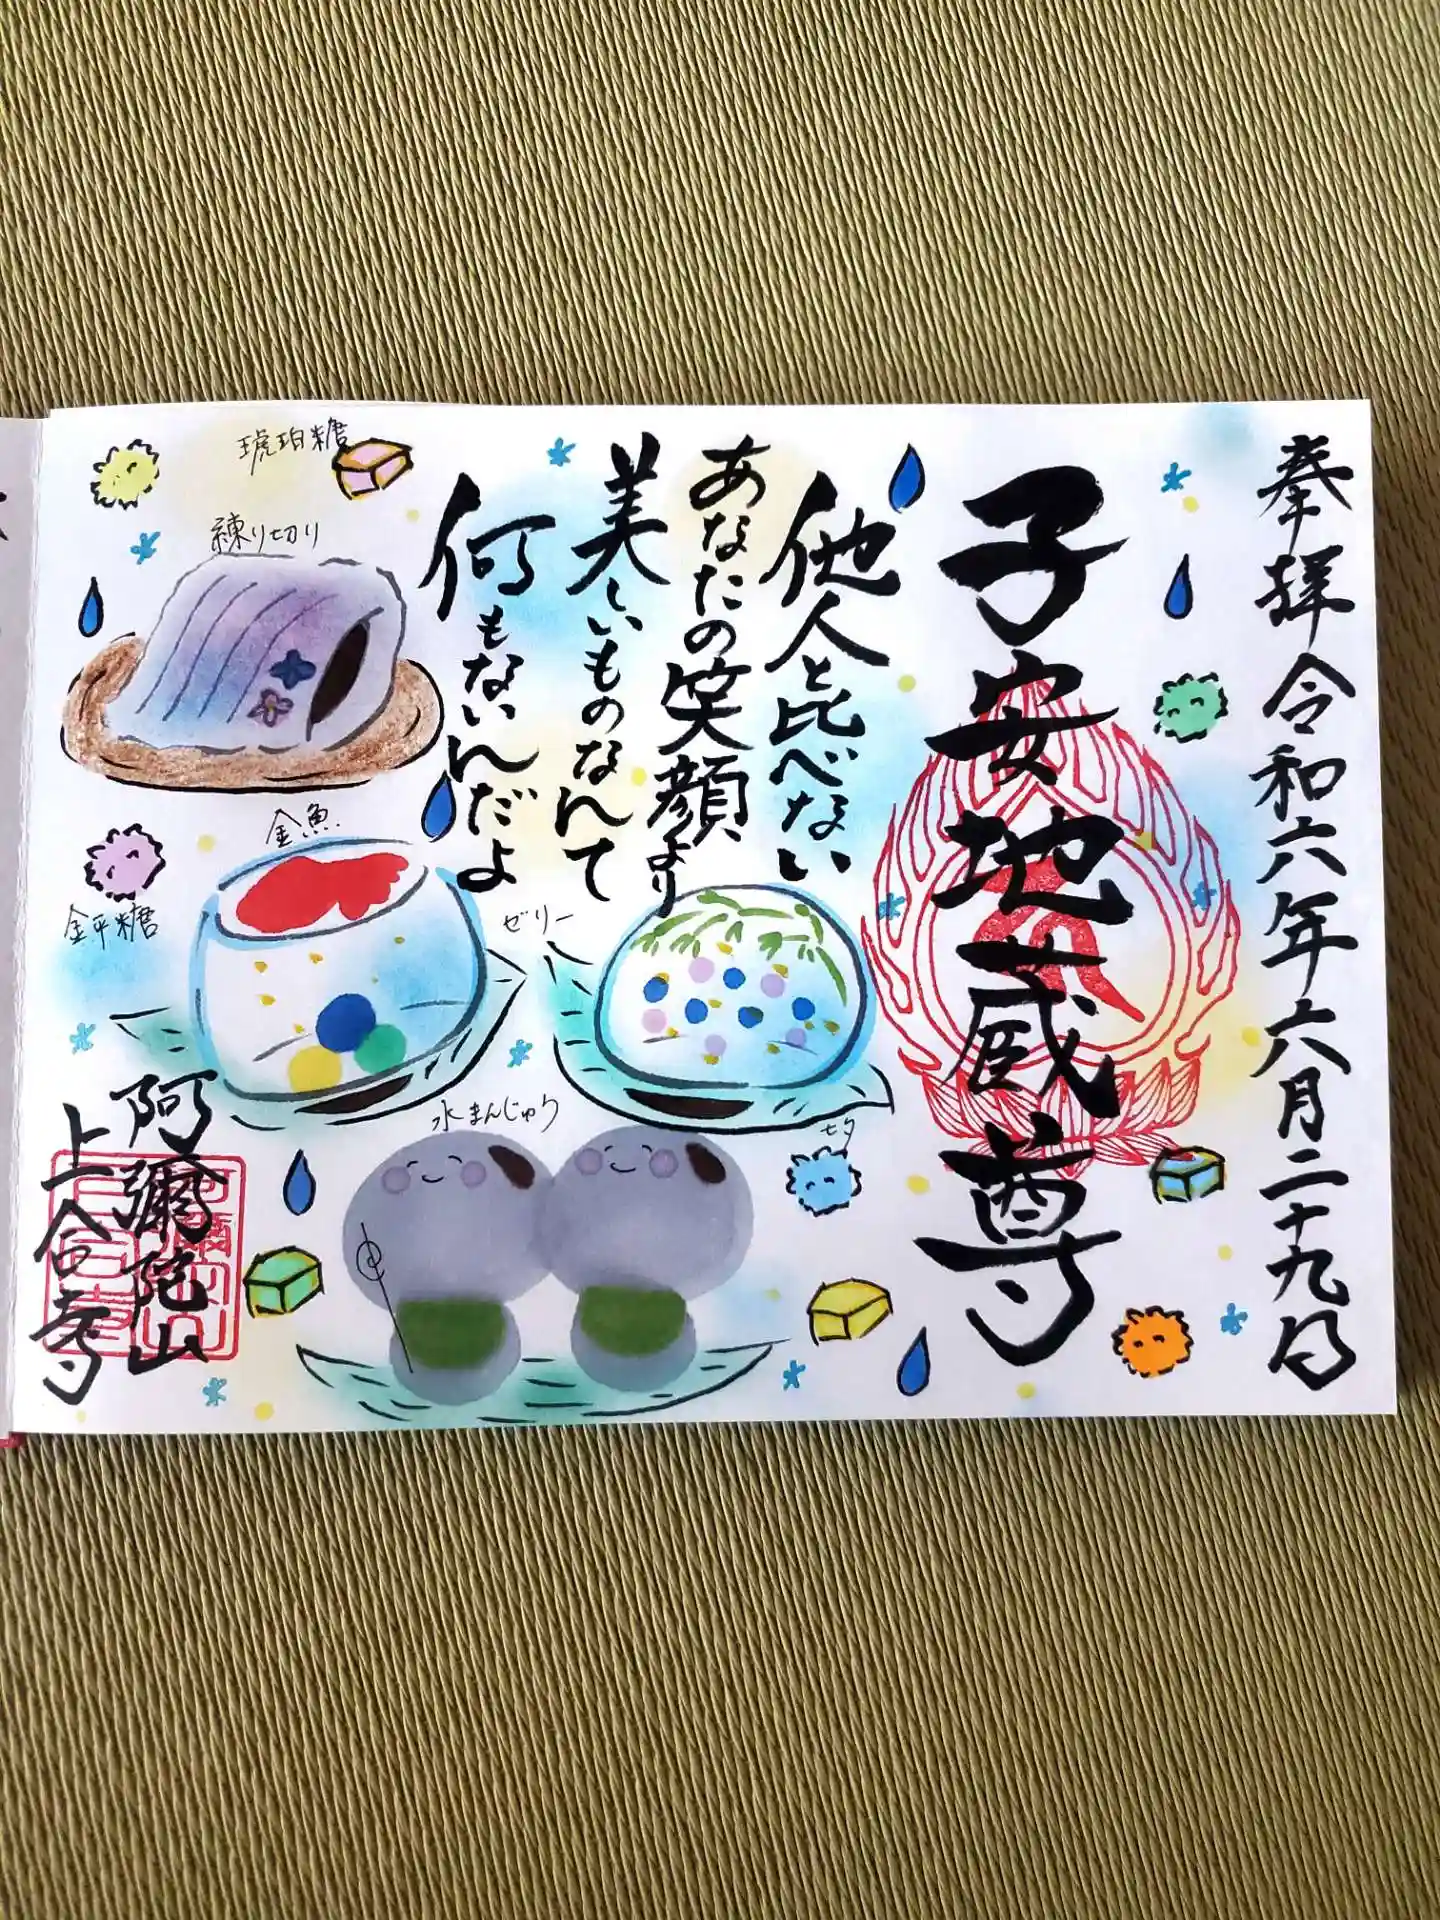 奉拝 令和六年六月二十九日
子安地蔵尊
他人と比べない
あなたの笑顔より
美しいものなんて
何もないんだよ
琥珀糖
練り切り
金魚
金平糖
ゼリー
七夕
水まんじゅう
阿彌陀山
上合寺